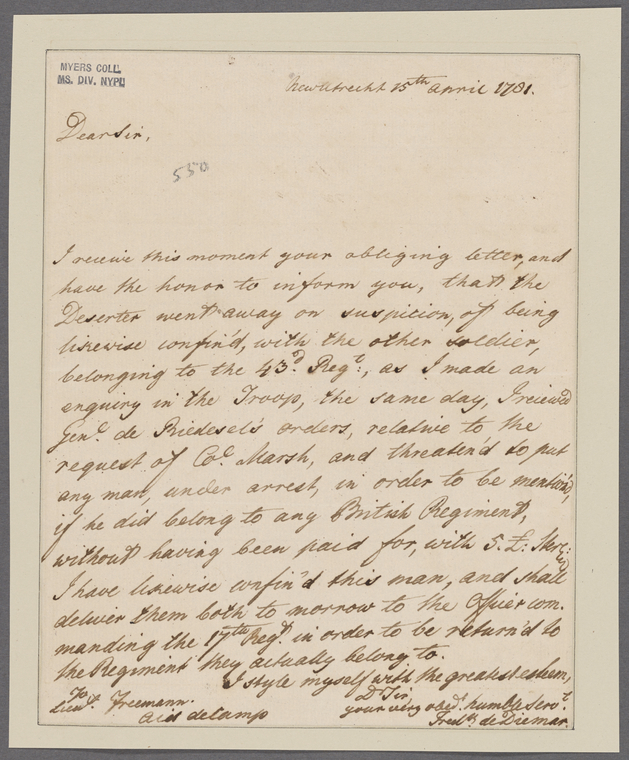 MYERS COLL.
MS. DIV. NYPL
New Utrecht 15th April 1781.
Dear Sir,
550
I receive this moment your obliging letter, and
have the honor to inform you, that the
Deserter went away on suspicion, of being
likewise confin'd, with the other soldier,
belonging to the 43d Regt:, as I made an
enquiry in the Troop, the same day, I reciev'd
Genl de Riedesel's orders, relative to the
request of Col Marsh, and threaten'd to put
any man, under arrest, in order to be mention'd,
if he did belong to any British Regiment,
without having been paid for, with 5. £: Sterl:
I have likewise confin'd this man, and shall
deliver them both to morrow to the Officer com.
manding the 17th Regt in order to be return'd to
the Regiment they actually belong to.
I style myself with the greatest esteem,
Dr Sir,
your very obedt humble servt
Fredk de Diemar.
To
Lieut Freemann.
Aid de Camp